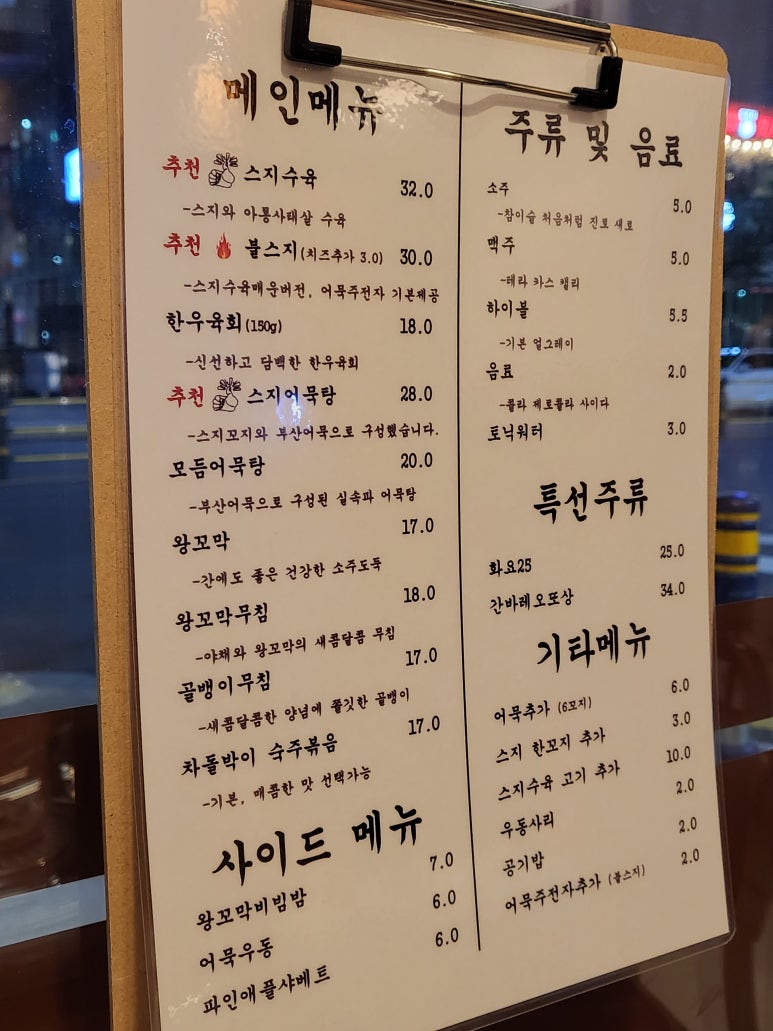 메인메뉴
추천 스지수육 32.0
-스지와 아롱사태살 수육
추천 불스지(치즈추가 3.0) 30.0
-스지수육매운버전, 어묵주전자 기본제공
한우육회(150g) 18.0
-신선하고 담백한 한우육회
추천 스지어묵탕 28.0
-스지꼬지와 부산어묵으로 구성했습니다.
모듬어묵탕 20.0
-부산어묵으로 구성된 실속파 어묵탕
왕꼬막 17.0
-간에도 좋은 건강한 소주도둑
왕꼬막무침 18.0
-야채와 왕꼬막의 새콤달콤 무침
골뱅이무침 17.0
-새콤달콤한 양념에 쫄깃한 골뱅이
차돌박이 숙주볶음 17.0
-기본, 매콤한 맛 선택가능
사이드 메뉴
왕꼬막비빔밥 7.0
어묵우동 6.0
파인애플샤베트 6.0
주류 및 음료
소주 5.0
-참이슬 처음처럼 진로 새로
맥주 5.0
-테라 카스 켈리
하이볼 5.5
-기본 얼그레이
음료 2.0
-콜라 제로콜라 사이다
토닉워터 3.0
특선주류
화요25 25.0
간바레오또상 34.0
기타메뉴
어묵추가 (6꼬지) 6.0
스지 한꼬지 추가 3.0
스지수육 고기 추가 10.0
우동사리 2.0
공기밥 2.0
어묵주전자추가 (불스지) 2.0